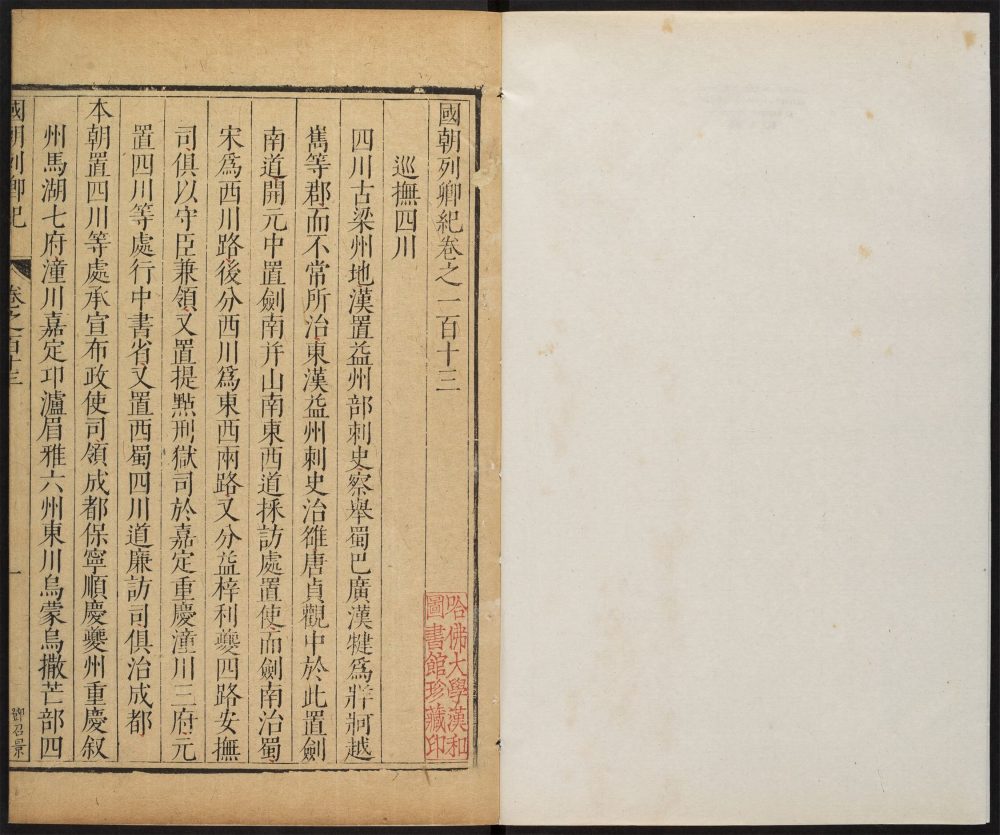 國朝列卿紀卷之一百十三
巡撫四川
四川古梁州地漢置益州部刺史察舉蜀巴廣漢犍爲牂牁越
嶲等郡而不常所治東漢益州刺史治雒唐貞觀中於此置劍
南道開元中置劍南并山南東西道採訪處置使而劍南治蜀
宋爲西川路後分西川爲東西兩路又分益梓利夔四路安撫
司俱以守臣兼領又置提點刑獄司於嘉定重慶潼川三府元
置四川等處行中書省又置西蜀四川道廉訪司俱治成都
本朝置四川等處承宣布政使司領成都保寧順慶夔州重慶叙
州馬湖七府潼川嘉定卭瀘眉雅六州東川烏蒙烏撒芒部四
國朝列卿紀
卷之一百十三
一
鄧召景
哈佛大學漢和
圖書館珍藏印